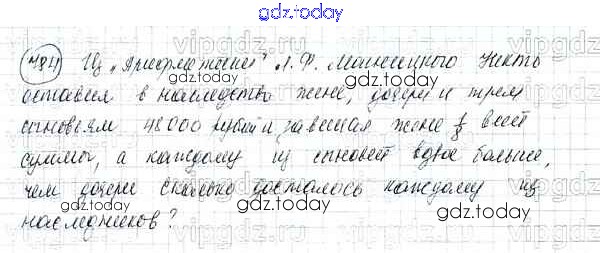 gdz.today
784 Из "Арифметики" Л.Ф. Магницкого Некто
оставил в наследство жене, дочери и трем
сыновьям 48000 рублей и завещал жене 1/8 всей
суммы, а каждому из сыновей вдвое больше,
чем дочери Сколько досталось каждому из
наследников?
gdz.today